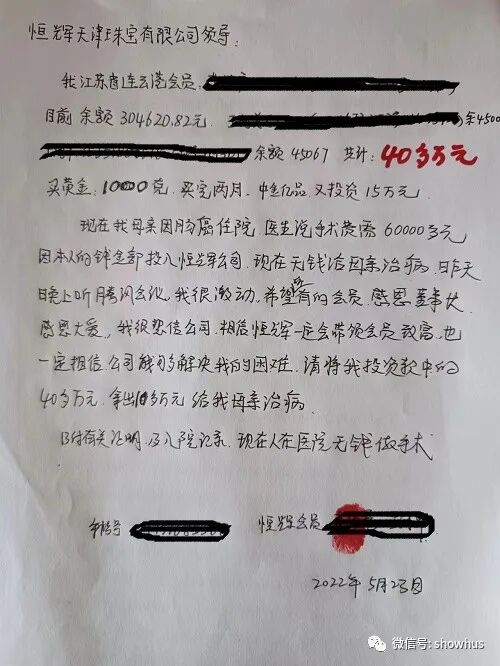 恒辉天津珠宝有限公司领导:
我江苏省连云港会员:
目前 余额 304620.82元. 余4500
余额 45067 共计: 40多万元
买黄金: 10000克. 买完两月. 中金亿品 又投资 15万元.
现在我母亲因肠癌住院. 医生说手术费需 60000多元
因本人的钱全部投入恒辉公司. 现在无钱治母亲治病. 昨天
晚上听腾讯会议. 我很激动. 希望有的会员. 感恩董事长
感恩大爱. 我很想信公司. 相信恒辉一定会带领会员致富. 也
一定相信公司能够解决我的困难. 请将我投资款中的
40多万元. 拿出10多万元 给我母亲治病.
附有关证明. 及入院记录. 现在人在医院无钱做手术
恒辉会员
2022年 5月23日
微信号: showhus